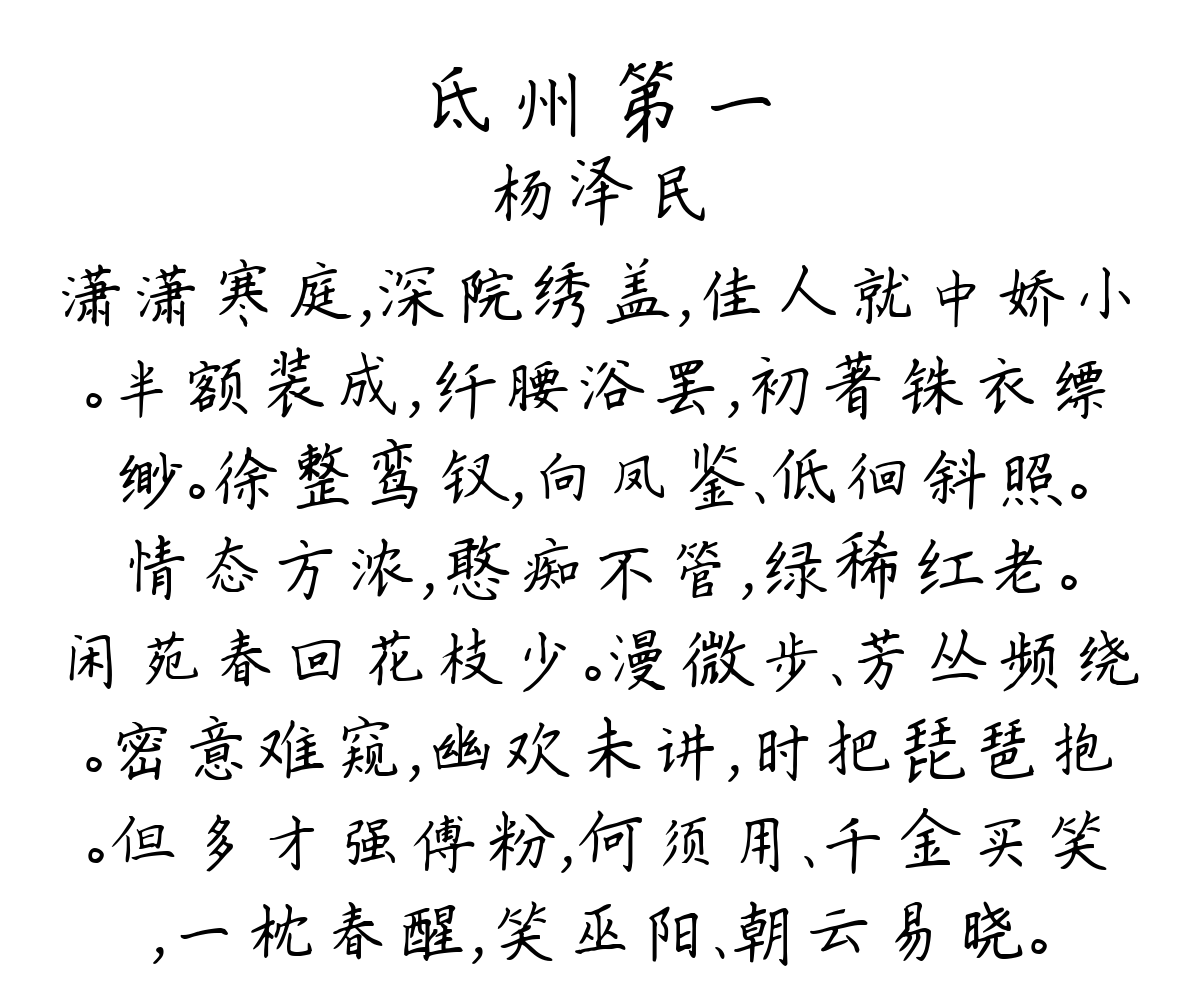 氐州第一
杨泽民
潇潇寒庭,深院绣盖,佳人就中娇小
。半额装成,纤腰浴罢,初著铢衣缥
缈。徐整鸾钗,向凤鉴、低徊斜照。
情态方浓,憨痴不管,绿稀红老。
闲苑春回花枝少。漫微步、芳丛频绕
。密意难窥,幽欢未讲,时把琵琶抱
。但多才强傅粉,何须用、千金买笑
,一枕春醒,笑巫阳、朝云易晓。